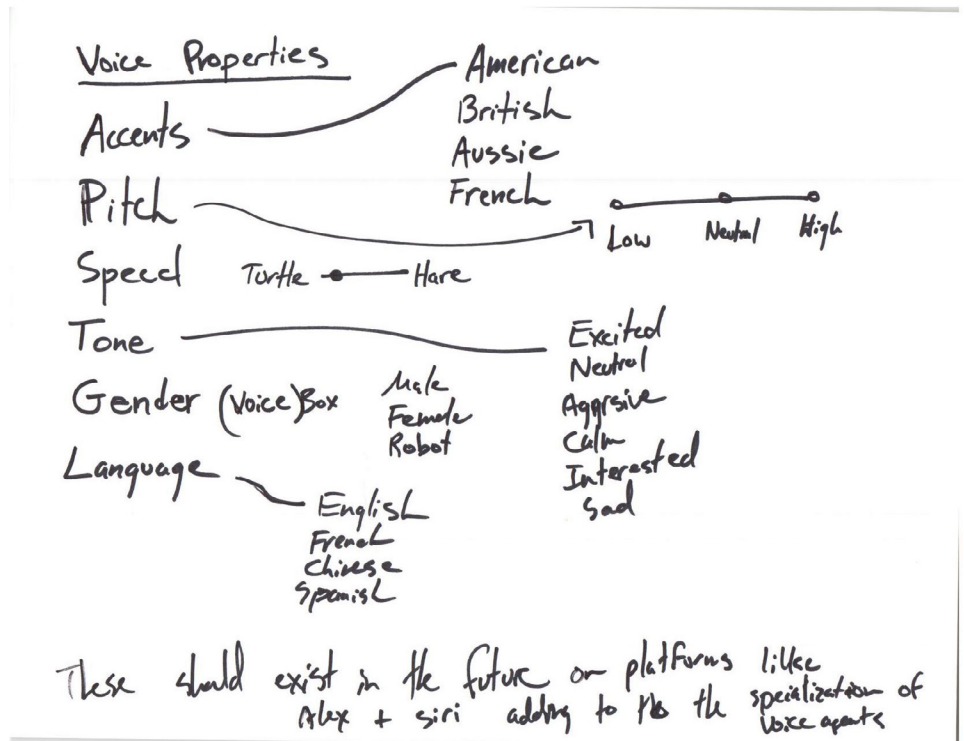 Voice Properties
Accents
American
British
Aussie
French
Pitch
Low Neutral High
Speed Turtle Hare
Tone
Excited
Neutral
Aggrsive
Calm
Interested
Sad
Gender (Voice) Box
Male
Female
Robot
Language
English
French
Chinese
Spanish
These should exist in the future on platforms like
Alex + siri adding to the specialization of
voice agents